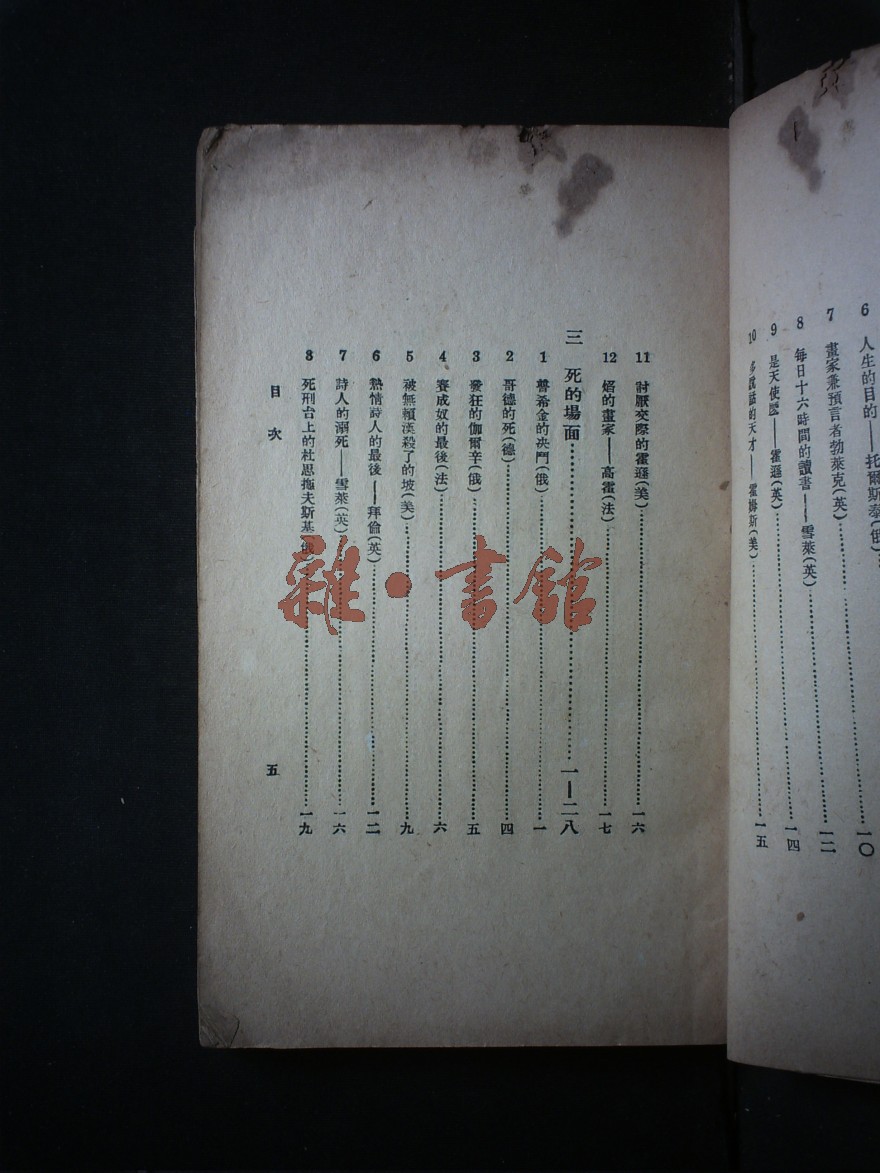 6 人生的目的——托爾斯泰(俄)……一〇
7 畫家兼預言者勃萊克(英)……一二
8 每日十六時間的讀書——雪萊(英)……一四
9 是天使麽——霍遜(英)
10 多說話的天才——霍姆斯(美)……一五
11 討厭交際的霍遜(美)……一六
12 焰的畫家——高霍(法)……一七
三 死的場面……一—二八
1 普希金的決鬥(俄)……一
2 哥德的死(德)……四
3 發狂的伽爾辛(俄)……五
4 賽成奴的最後(法)……六
5 被無賴漢殺了的坡(美)……九
6 熱情詩人的最後——拜倫(英)……一二
7 詩人的溺死——雪萊(英)……一六
8 死刑台上的杜思拖夫斯基(俄)……一九
目次
五
雜·書館